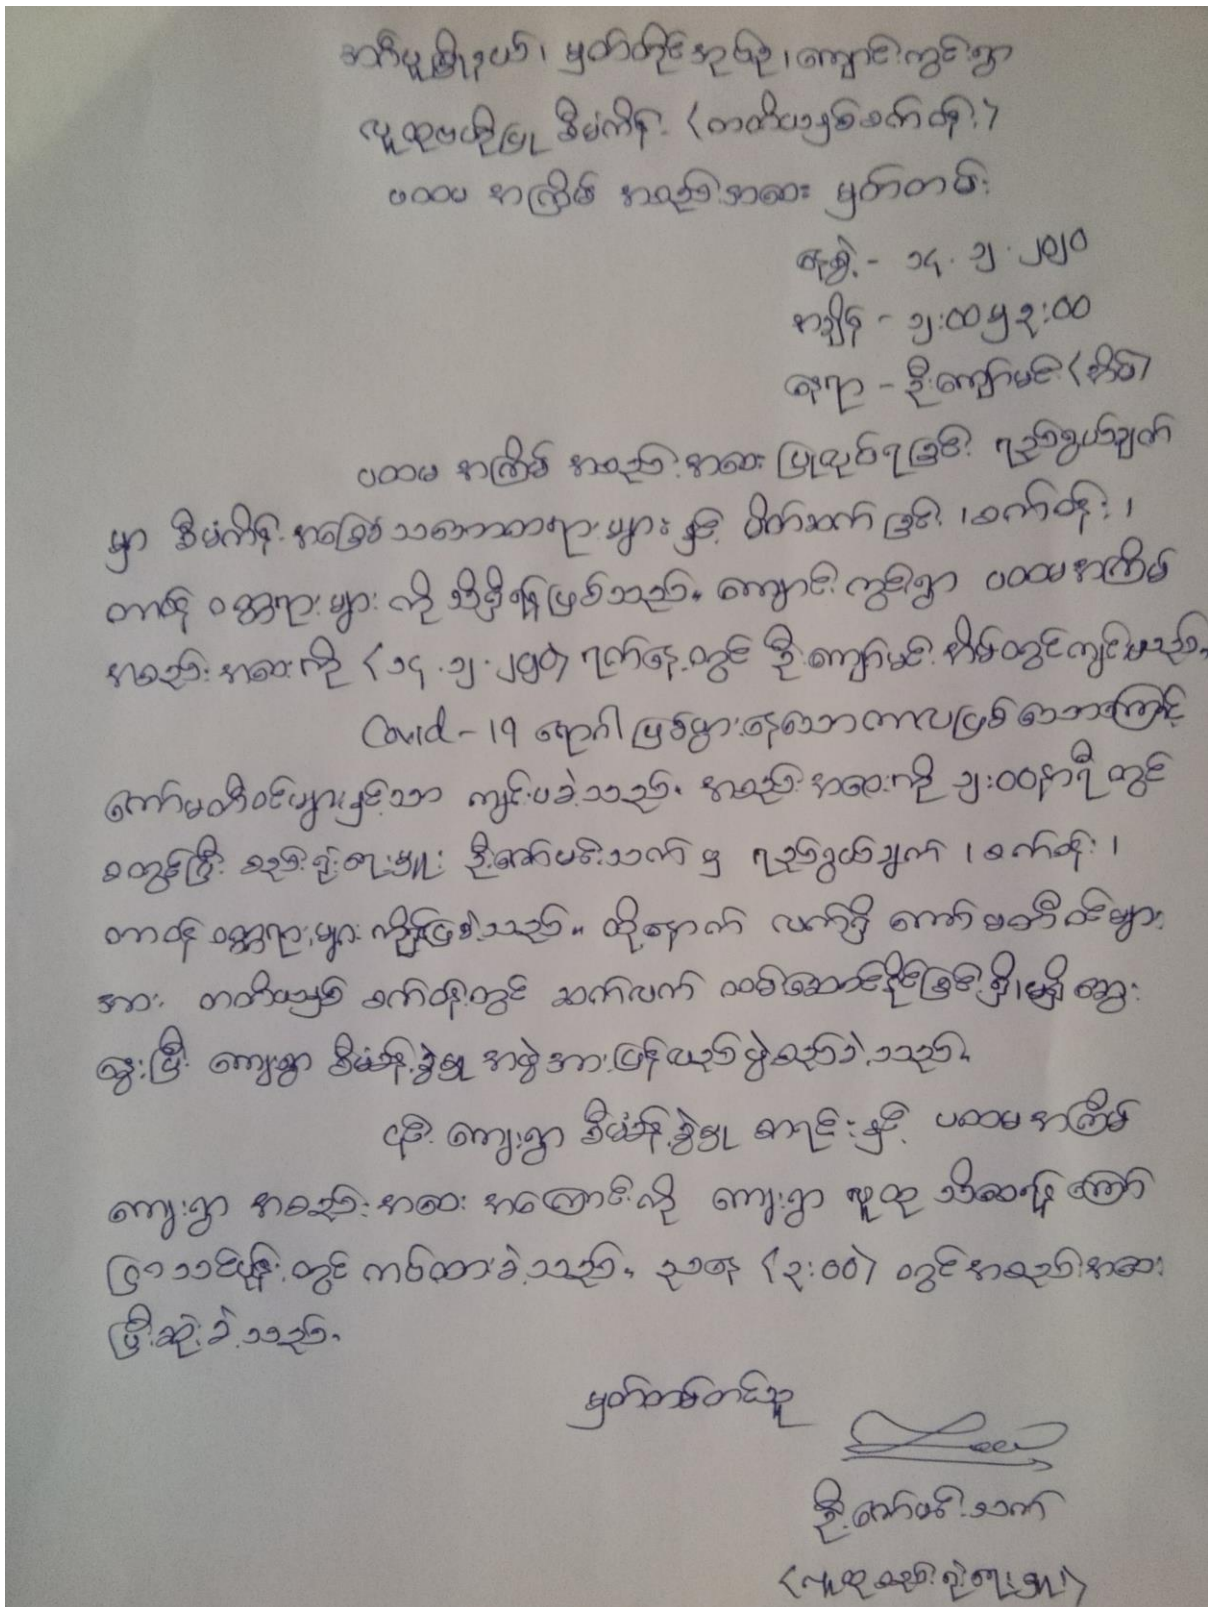 အင်္ဂပူမြို့နယ်၊ မှတ်တိုင်အုပ်စု၊ ကျောင်းကွင်းရွာ
လူထုဗဟိုပြု စီမံကိန်း (တတိယနှစ်စက်ဝန်း)
ပထမ အကြိမ် အစည်းအဝေး မှတ်တမ်း
နေ့စွဲ - ၁၄.၁၂.၂၀၂၀
အချိန် - ၁၂:၀၀ မှ ၃:၀၀
နေရာ - ဦးကျော်မင်း (အိမ်)
ပထမ အကြိမ် အစည်းအဝေး ပြုလုပ်ရခြင်း ရည်ရွယ်ချက်
မှာ စီမံကိန်း အခြေခံသဘောတရားများ နှင့် မိတ်ဆက်ခြင်း၊ စက်ဝန်း၊
တာဝန် ဝတ္တရားများ ကို သိရှိရန်ဖြစ်သည်။ ကျောင်းကွင်းရွာ ပထမအကြိမ်
အစည်းအဝေးကို (၁၄.၁၂.၂၀၂၀) ရက်နေ့တွင် ဦးကျော်မင်း အိမ်တွင်ကျင်းပသည်။
Covid-19 ရောဂါ ဖြစ်ပွားနေသောကာလဖြစ်သောကြောင့်
ကော်မတီဝင်များနှင့်သာ ကျင်းပခဲ့သည်။ အစည်းအဝေးကို ၁၂:၀၀နာရီ တွင်
စတင်ပြီး စည်းရုံးရေးမှူး ဦးဇော်မင်းသက် မှ ရည်ရွယ်ချက်၊ စက်ဝန်း၊
တာဝန် ဝတ္တရားများ ကိုရှင်းပြခဲ့သည်။ ထို့နောက် လက်ရှိ ကော်မတီဝင်များ
အား တတိယနှစ် စက်ဝန်းတွင် ဆက်လက် ထမ်းဆောင်နိုင်ခြင်း ရှိ၊မရှိ ဆွေး
နွေးပြီး ကျေးရွာ စီမံခန့်ခွဲမှု အဖွဲ့အား ပြန်လည်ဖွဲ့စည်းခဲ့သည်။
၎င်း ကျေးရွာ စီမံခန့်ခွဲမှု စာရင်း နှင့် ပထမအကြိမ်
ကျေးရွာ အစည်းအဝေး အကြောင်းကို ကျေးရွာ လူထု သိစေရန် ကြော်
ငြာသင်ပုန်းတွင် ကပ်ထားခဲ့သည်။ ညနေ (၃:၀၀) တွင် အစည်းအဝေး
ပြီးဆုံးခဲ့သည်။
မှတ်တမ်းတင်သူ
ဦးဇော်မင်းသက်
(လူထုစည်းရုံးရေးမှူး)